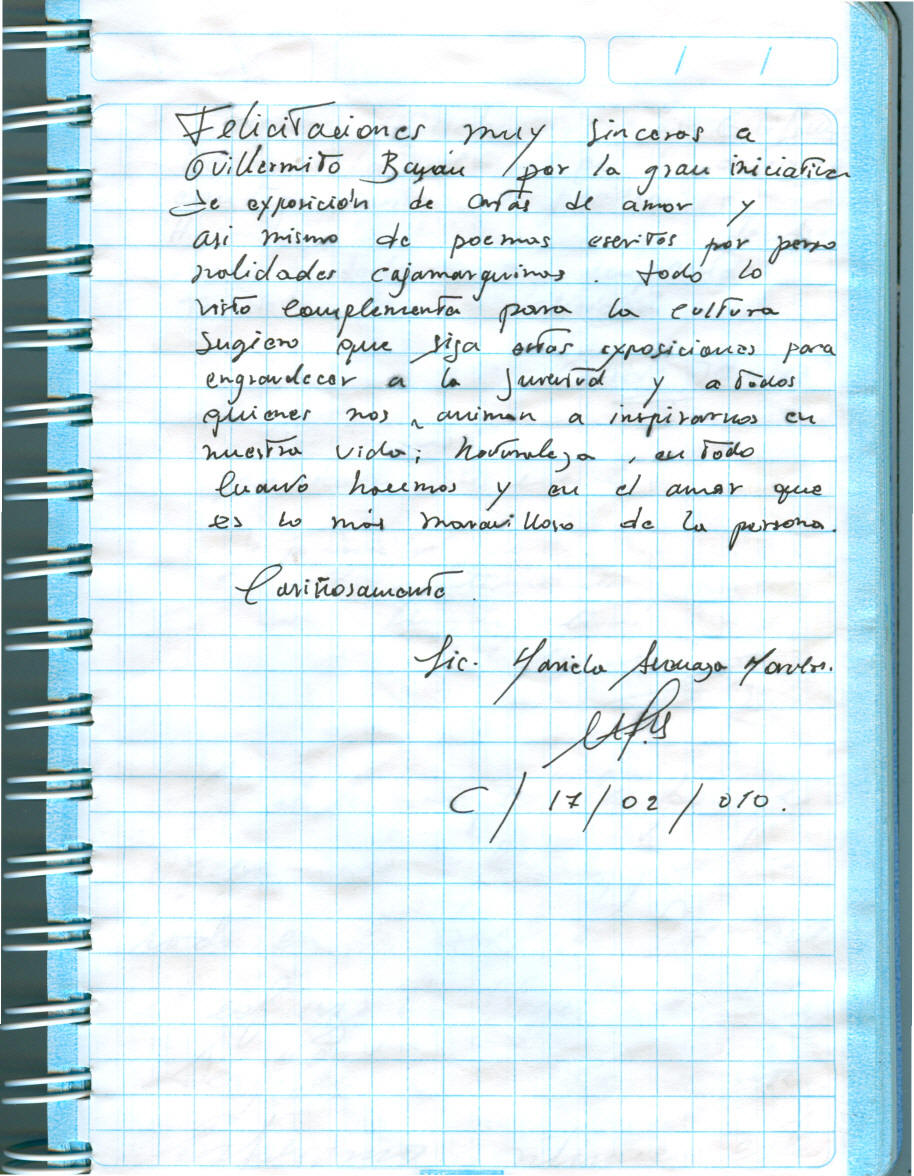 / /
Felicitaciones muy sinceras a
Guillermito Bazán por la gran iniciativa
de exposición de cartas de amor y
asi mismo de poemas escritos por perso
nalidades cajamarquinas. todo lo
visto complementa para la cultura
Sugiero que siga estas exposiciones para
engrandecer a la juventud y a todos
quienes nos animan a inspirarnos en
nuestra vida; Naturaleza, en todo
cuanto hacemos y en el amar que
es lo más maravilloso de la persona.
Cariñosamente.
Lic. Mariela
C/17/02/010.